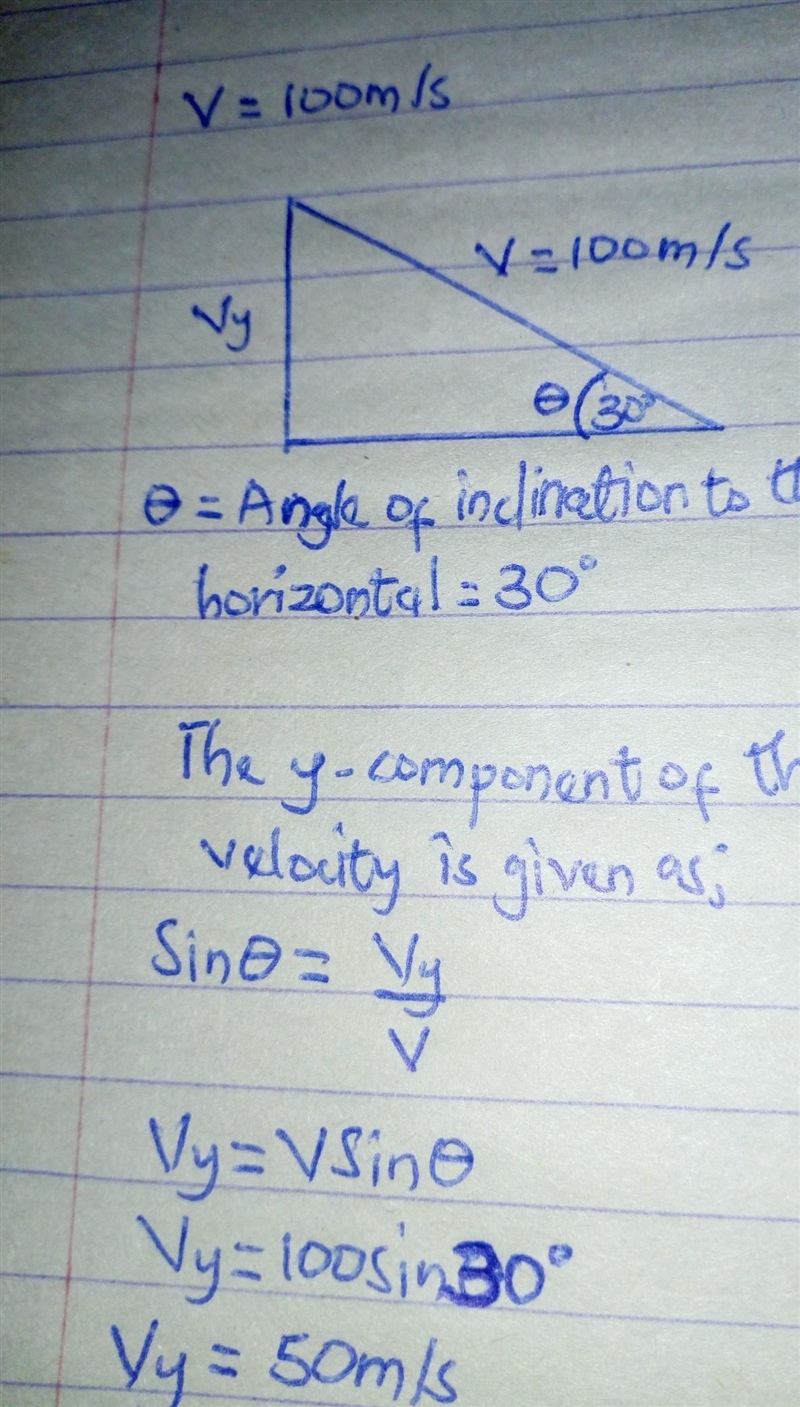 V = 100m/s
V = 100m/s
Vy
θ 30°
θ = Angle of inclination to
horizontal = 30°
The y-component of
velocity is given as;
Sinθ = Vy
V
Vy = VSinθ
Vy = 100sin30°
Vy = 50m/s